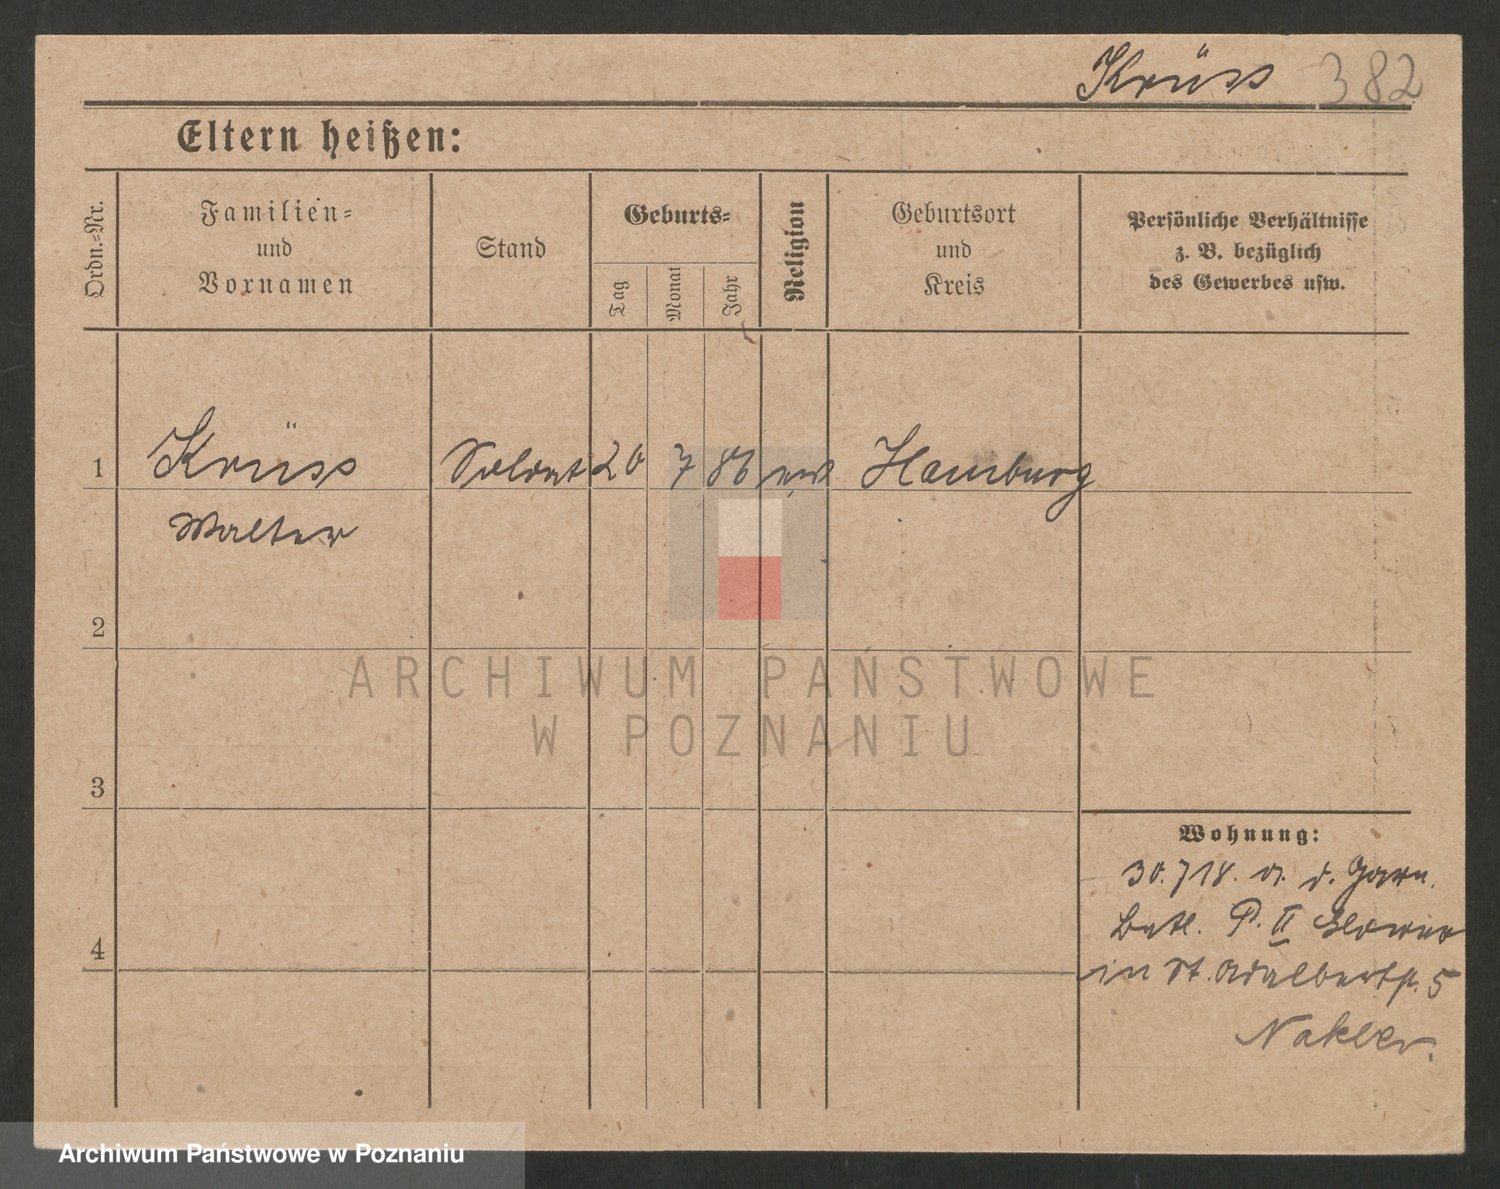 Krüss 382
Eltern heißen:
Ordn.-Nr.
Familien-
und
Vornamen
Stand
Geburts-
Tag
Monat
Jahr
Religion
Geburtsort
und
Kreis
Persönliche Verhältnisse
z. B. bezüglich
des Gewerbes usw.
1 Krüss Soldat 20 7 86 Hamburg
Walter
2
3
4
Wohnung:
30.718. a. d. Garn.
Batl. P. II
in St. Adalbertstr. 5
ARCHIWUM PAŃSTWOWE
W POZNANIU
Archiwum Państwowe w Poznaniu